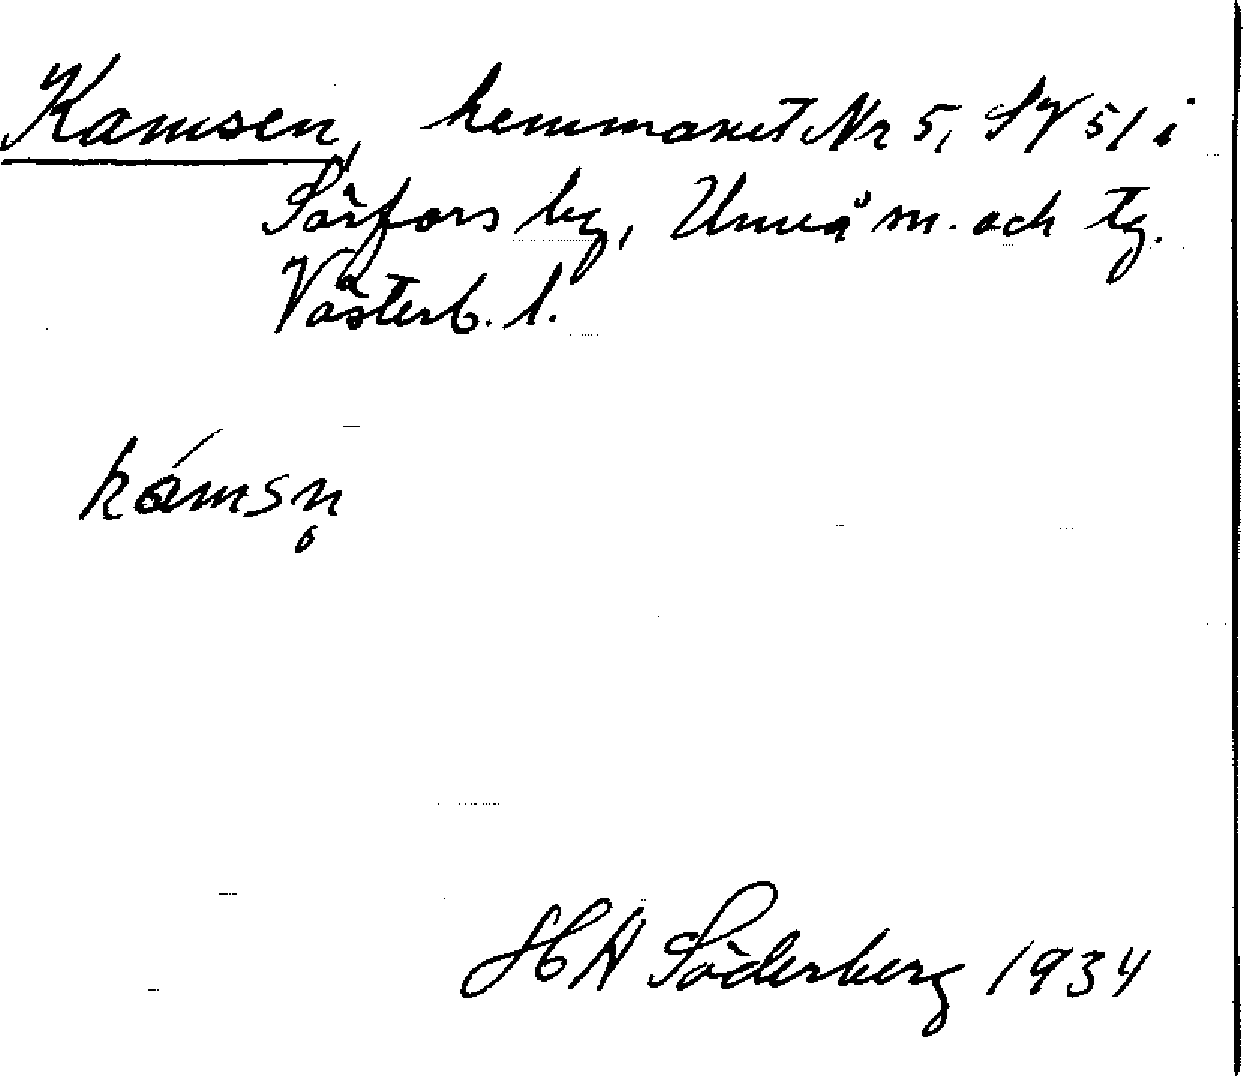 Kamsen, hemmanet Nr 5, SV 51 i
Sörfors by, Umeå sn. och tg.
Västerb. l.
kámsn̥
H A Söderberg 1934